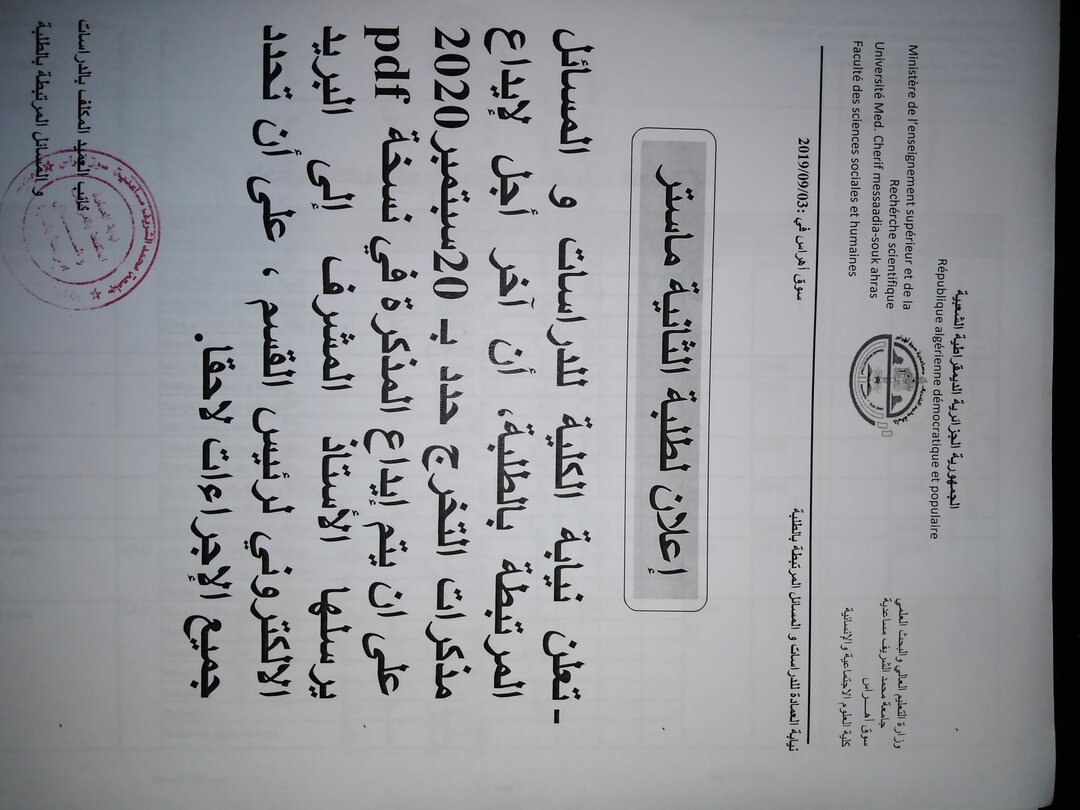 الجمهورية الجزائرية الديمقراطية الشعبية
République algérienne démocratique et populaire
وزارة التعليم العالي والبحث العلمي
جامعة محمد الشريف مساعدية
سوق أهـــراس
كلية العلوم الاجتماعية والإنسانية
Ministère de l'enseignement supérieur et de la
Rechérche scientifique
Université Med. Cherif messaadia-souk ahras
Faculté des sciences sociales et humaines
نيابة العمادة للدراسات و المسائل المرتبطة بالطلبة
سوق أهراس في :2019/09/03
إعلان لطلبة الثانية ماستر
-تعلن نيابة الكلية للدراسات و المسائل
المرتبطة بالطلبة، أن آخر أجل لإيداع
مذكرات التخرج حدد بـ 20سبتمبر2020
على ان يتم إيداع المذكرة في نسخة pdf
يرسلها الأستاذ المشرف إلى البريد
الالكتروني لرئيس القسم ، على أن تحدد
جميع الإجراءات لاحقا.
نائب العميد المكلف بالدراسات
و المسائل المرتبطة بالطلبة